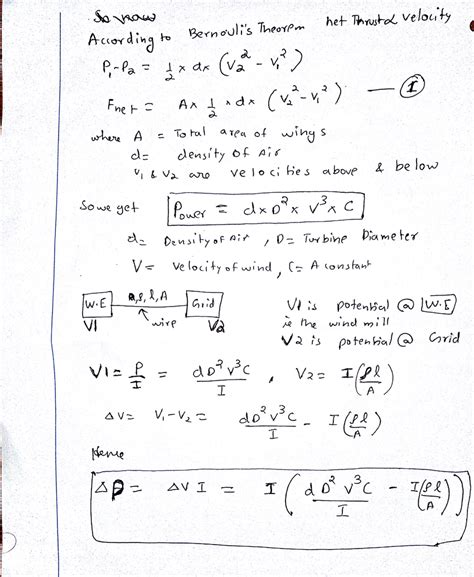 So now
According to Bernouli's Theorem net Thrust & velocity
P₁-P₂ = 1/2 × d × (V₂² - V₁²)
Fnet = A × 1/2 × d × (V₂² - V₁²) — I
where A = Total area of wings
d = density of Air
V₁ & V₂ are velocities above & below
So we get Power = d × D² × V³ × C
d = Density of Air, D = Turbine Diameter
V = Velocity of wind, C = A constant
W.E R, ρ, l, A Grid V1 is potential @ W.E
V1 wire V2 ie the wind mill
V2 is potential @ Grid
V1 = P/I = dD²V³C/I, V2 = I(ρl/A)
ΔV = V₁-V₂ = dD²V³C/I - I(ρl/A)
Hence
ΔP = ΔV I = I(dD²V³C/I - I(ρl/A))